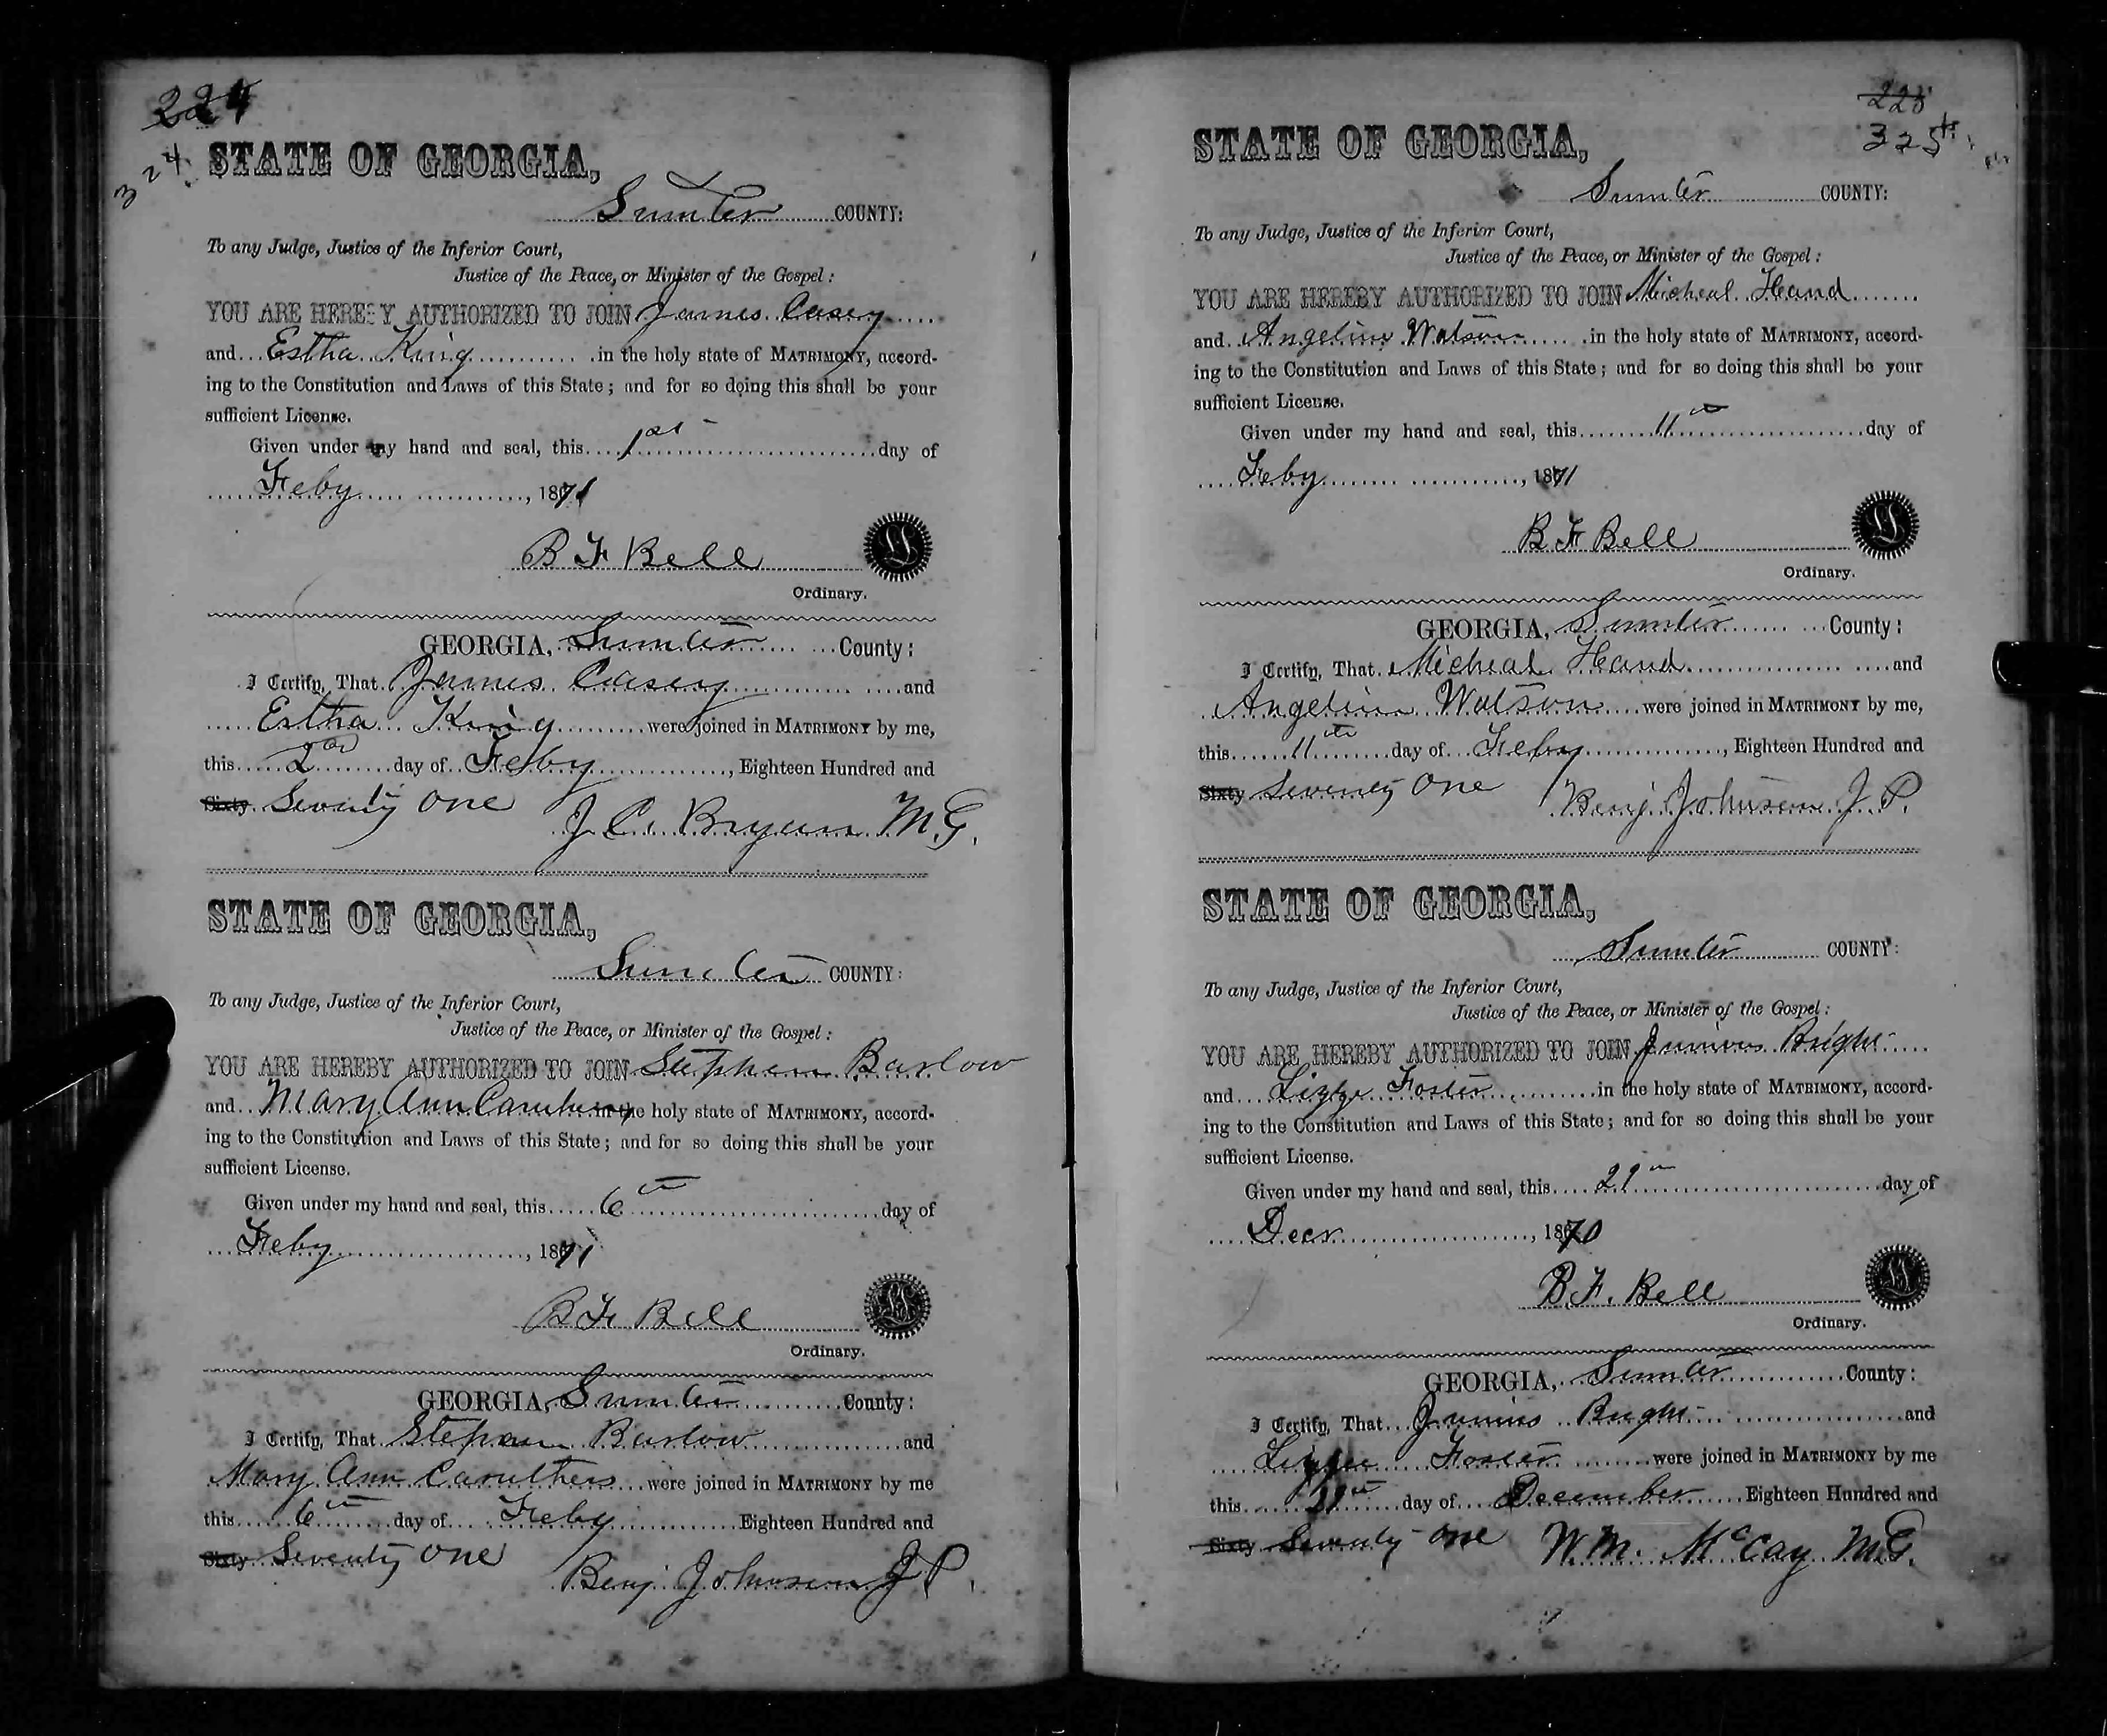 224
324
STATE OF GEORGIA,
Sumter COUNTY:
To any Judge, Justice of the Inferior Court,
Justice of the Peace, or Minister of the Gospel:
YOU ARE HEREBY AUTHORIZED TO JOIN James Casey
and Estha King in the holy state of MATRIMONY, accord-
ing to the Constitution and Laws of this State; and for so doing this shall be your
sufficient License.
Given under my hand and seal, this 1st day of
Feby, 1871
B F Bell
Ordinary.
GEORGIA, Sumter County:
I Certify, That James Casey and
Estha King were joined in MATRIMONY by me,
this 2nd day of Feby, Eighteen Hundred and
Sixty Seventy one J. C. Bryan M.G.
STATE OF GEORGIA,
Sumter COUNTY:
To any Judge, Justice of the Inferior Court,
Justice of the Peace, or Minister of the Gospel:
YOU ARE HEREBY AUTHORIZED TO JOIN Stephen Barlow
and Mary Ann Caruthers in the holy state of MATRIMONY, accord-
ing to the Constitution and Laws of this State; and for so doing this shall be your
sufficient License.
Given under my hand and seal, this 6th day of
Feby, 1871
B F Bell
Ordinary.
GEORGIA, Sumter County:
I Certify, That Stephen Barlow and
Mary Ann Caruthers were joined in MATRIMONY by me
this 6th day of Feby Eighteen Hundred and
Sixty Seventy one Benj. Johnson J P.
225
325
STATE OF GEORGIA,
Sumter COUNTY:
To any Judge, Justice of the Inferior Court,
Justice of the Peace, or Minister of the Gospel:
YOU ARE HEREBY AUTHORIZED TO JOIN Micheal Hand
and Angeline Watson in the holy state of MATRIMONY, accord-
ing to the Constitution and Laws of this State; and for so doing this shall be your
sufficient License.
Given under my hand and seal, this 11th day of
Feby, 1871
B F Bell
Ordinary.
GEORGIA, Sumter County:
I Certify, That Micheal Hand and
Angeline Watson were joined in MATRIMONY by me,
this 11th day of Feby, Eighteen Hundred and
Sixty Seventy One Benj. Johnson J. P.
STATE OF GEORGIA,
Sumter COUNTY:
To any Judge, Justice of the Inferior Court,
Justice of the Peace, or Minister of the Gospel:
YOU ARE HEREBY AUTHORIZED TO JOIN Junius Bright
and Lizze Foster in the holy state of MATRIMONY, accord-
ing to the Constitution and Laws of this State; and for so doing this shall be your
sufficient License.
Given under my hand and seal, this 21th day of
Decr, 1870
B. F. Bell
Ordinary.
GEORGIA, Sumter County:
I Certify, That Junius Bright and
Lizzee Foster were joined in MATRIMONY by me
this day of December Eighteen Hundred and
Sixty Seventy one W. M. McCay M.G.